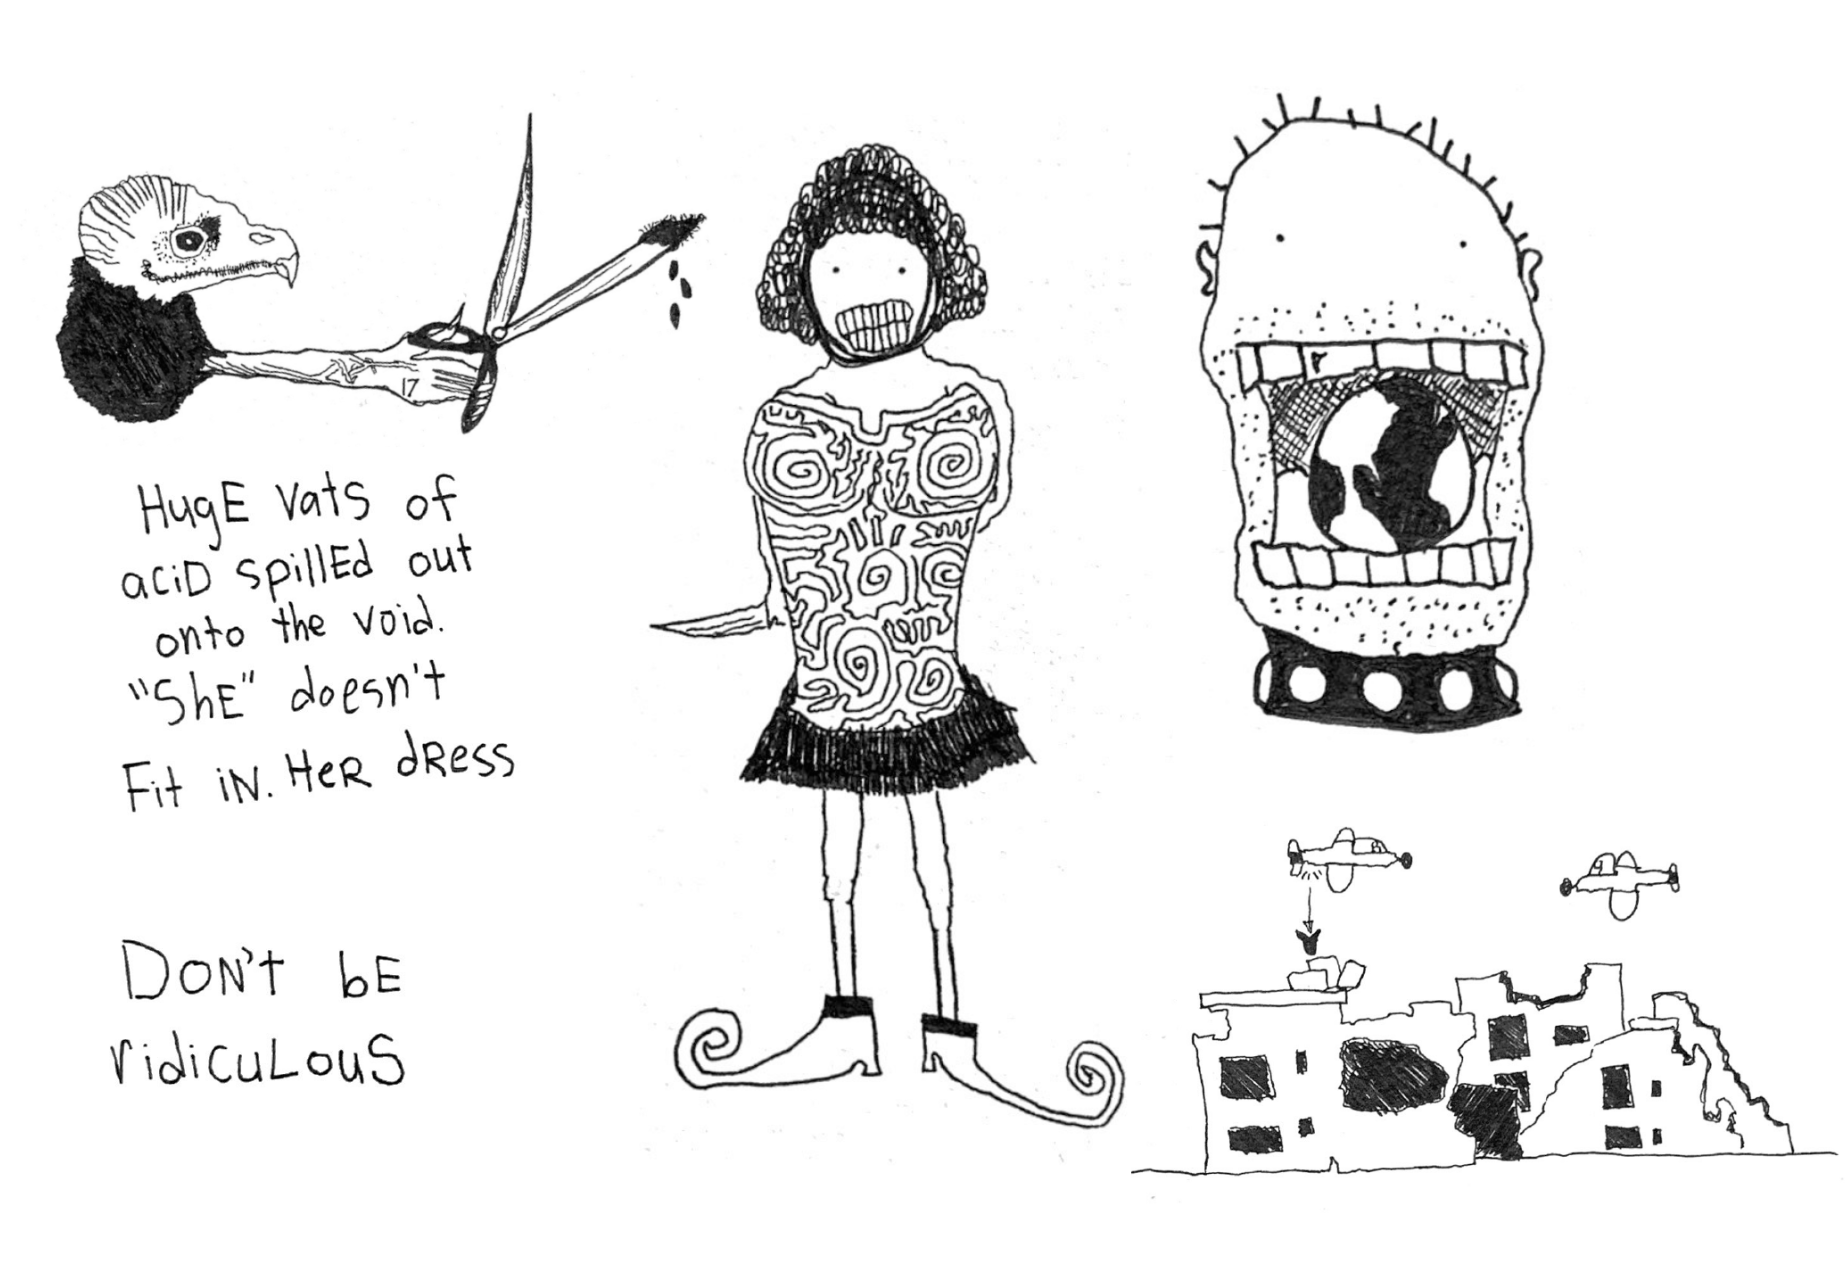 17
HugE vats of
aciD spillEd out
onto the void.
"ShE" doesn't
Fit iN. HeR dRess
DON't bE
ridicuLouS